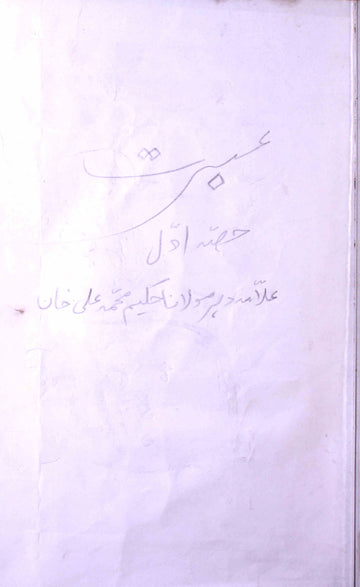 عبرت
حصّہ اوّل
علاّمہ دہر مولانا حکیم محمّد علی خاں